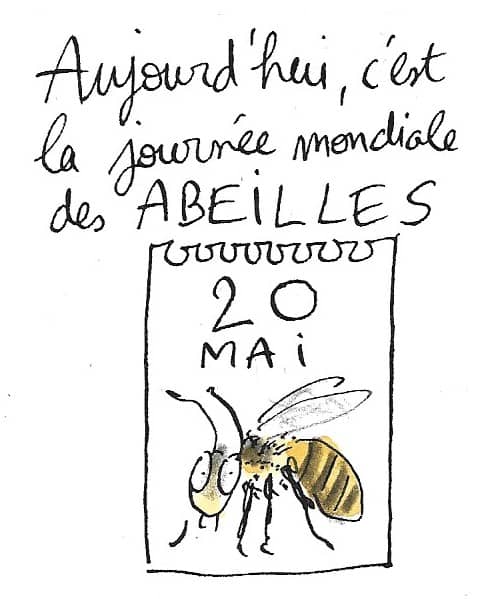 Aujourd'hui, c'est
la journée mondiale
des ABEILLES
20
MAI